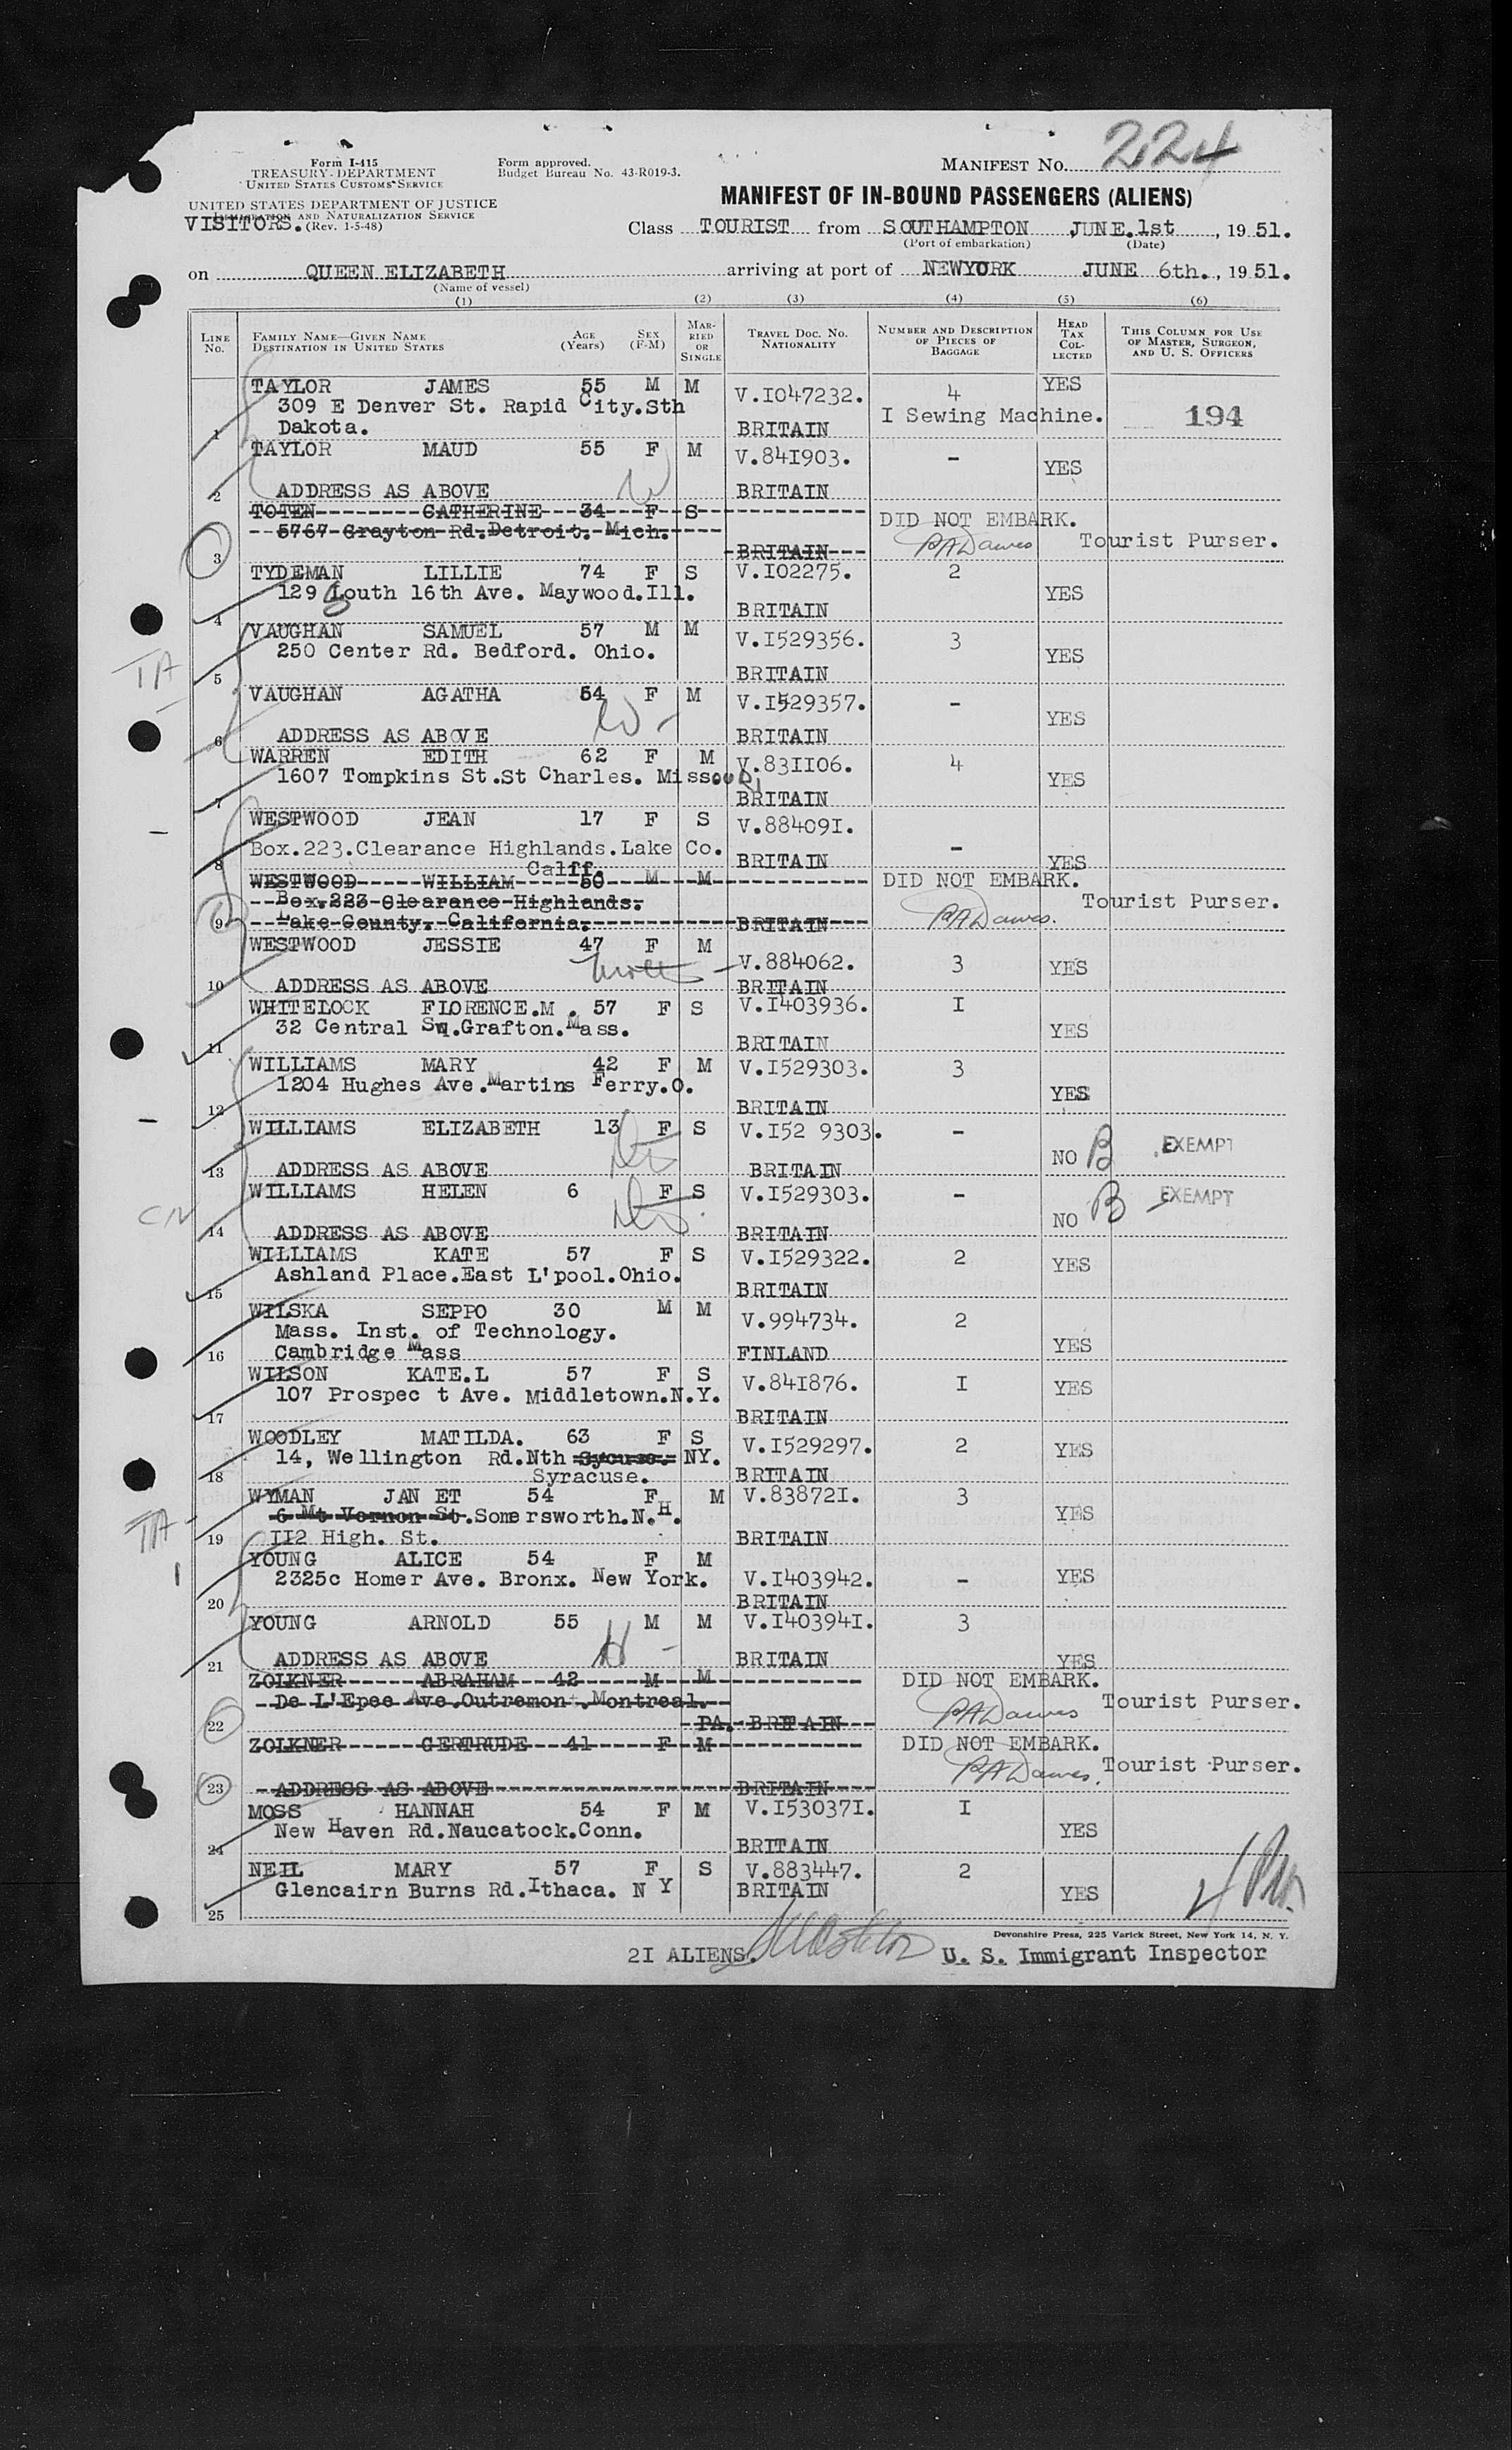 Form I-415
TREASURY DEPARTMENT
UNITED STATES CUSTOMS SERVICE
UNITED STATES DEPARTMENT OF JUSTICE
IMMIGRATION AND NATURALIZATION SERVICE
VISITORS. (Rev. 1-5-48)
Form approved.
Budget Bureau No. 43-R019-3.
MANIFEST No. 224
MANIFEST OF IN-BOUND PASSENGERS (ALIENS)
Class TOURIST from SOUTHAMPTON JUNE.1st, 1951.
(Port of embarkation) (Date)
on QUEEN ELIZABETH arriving at port of NEWYORK JUNE 6th., 1951.
(Name of vessel)
(1) (2) (3) (4) (5) (6)
LINE No. FAMILY NAME—GIVEN NAME DESTINATION IN UNITED STATES AGE (Years) SEX (F-M) MARRIED OR SINGLE TRAVEL DOC. NO. NATIONALITY NUMBER AND DESCRIPTION OF PIECES OF BAGGAGE HEAD TAX COLLECTED THIS COLUMN FOR USE OF MASTER, SURGEON, AND U. S. OFFICERS
TAYLOR JAMES 55 M M V.I047232. 4 YES
309 E Denver St. Rapid City.Sth I Sewing Machine. 194
1 Dakota. BRITAIN
TAYLOR MAUD 55 F M V.84I903. - YES
2 ADDRESS AS ABOVE BRITAIN
TOTEN CATHERINE 34 F S DID NOT EMBARK.
5767 Grayton Rd.Detroit. Mich. PADawes Tourist Purser.
3 BRITAIN
TYDEMAN LILLIE 74 F S V.I02275. 2
129 South 16th Ave. Maywood.Ill. YES
4 BRITAIN
VAUGHAN SAMUEL 57 M M V.I529356. 3
250 Center Rd. Bedford. Ohio. YES
TA
5 BRITAIN
VAUGHAN AGATHA 54 F M V.I529357. - YES
6 ADDRESS AS ABOVE BRITAIN
WARREN EDITH 62 F M V.83II06. 4
1607 Tompkins St.St Charles. Missouri YES
7 BRITAIN
WESTWOOD JEAN 17 F S V.88409I.
Box.223.Clearance Highlands.Lake Co. -
8 Calif. BRITAIN YES
WESTWOOD WILLIAM 50 M M DID NOT EMBARK.
Box.223 Clearance Highlands. Tourist Purser.
9 Lake County. California. BRITAIN PADawes.
WESTWOOD JESSIE 47 F M V.884062. 3 YES
10 ADDRESS AS ABOVE BRITAIN
WHITELOCK FLORENCE.M . 57 F S V.I403936. I
32 Central Sq.Grafton.Mass. YES
11 BRITAIN
WILLIAMS MARY 42 F M V.I529303. 3
1204 Hughes Ave.Martins Ferry.O. YES
12 BRITAIN
WILLIAMS ELIZABETH 13 F S V.I52 9303. -
NO B EXEMPT
13 ADDRESS AS ABOVE BRITAIN
WILLIAMS HELEN 6 F S V.I529303. - EXEMPT
NO B
14 ADDRESS AS ABOVE BRITAIN
WILLIAMS KATE 57 F S V.I529322. 2 YES
Ashland Place.East L'pool.Ohio.
15 BRITAIN
WILSKA SEPPO 30 M M V.994734. 2
Mass. Inst. of Technology. YES
16 Cambridge Mass FINLAND
WILSON KATE.L 57 F S V.84I876. I YES
107 Prospec t Ave. Middletown.N.Y.
17 BRITAIN
WOODLEY MATILDA. 63 F S V.I529297. 2 YES
14, Wellington Rd.Nth Sycuse. NY.
18 Syracuse. BRITAIN
WYMAN JAN ET 54 F M V.83872I. 3
6 Mt Vernon St.Somersworth.N.H. YES
TA
19 II2 High. St. BRITAIN
YOUNG ALICE 54 F M
2325c Homer Ave. Bronx. New York. V.I403942. - YES
20 BRITAIN
YOUNG ARNOLD 55 M M V.I40394I. 3
21 ADDRESS AS ABOVE BRITAIN YES
ZOLKNER ABRAHAM 42 M M DID NOT EMBARK.
De L'Epee Ave.Outremont.Montreal. PADawes Tourist Purser.
22 PA. BRITAIN
ZOLKNER GERTRUDE 41 F M DID NOT EMBARK.
PADawes. Tourist Purser.
23 ADDRESS AS ABOVE BRITAIN
MOSS HANNAH 54 F M V.I53037I. I
New Haven Rd.Naucatock.Conn. YES
24 BRITAIN
NEIL MARY 57 F S V.883447. 2
Glencairn Burns Rd.Ithaca. N Y BRITAIN YES
25
Devonshire Press, 225 Varick Street, New York 14, N. Y.
2I ALIENS. U. S. Immigrant Inspector